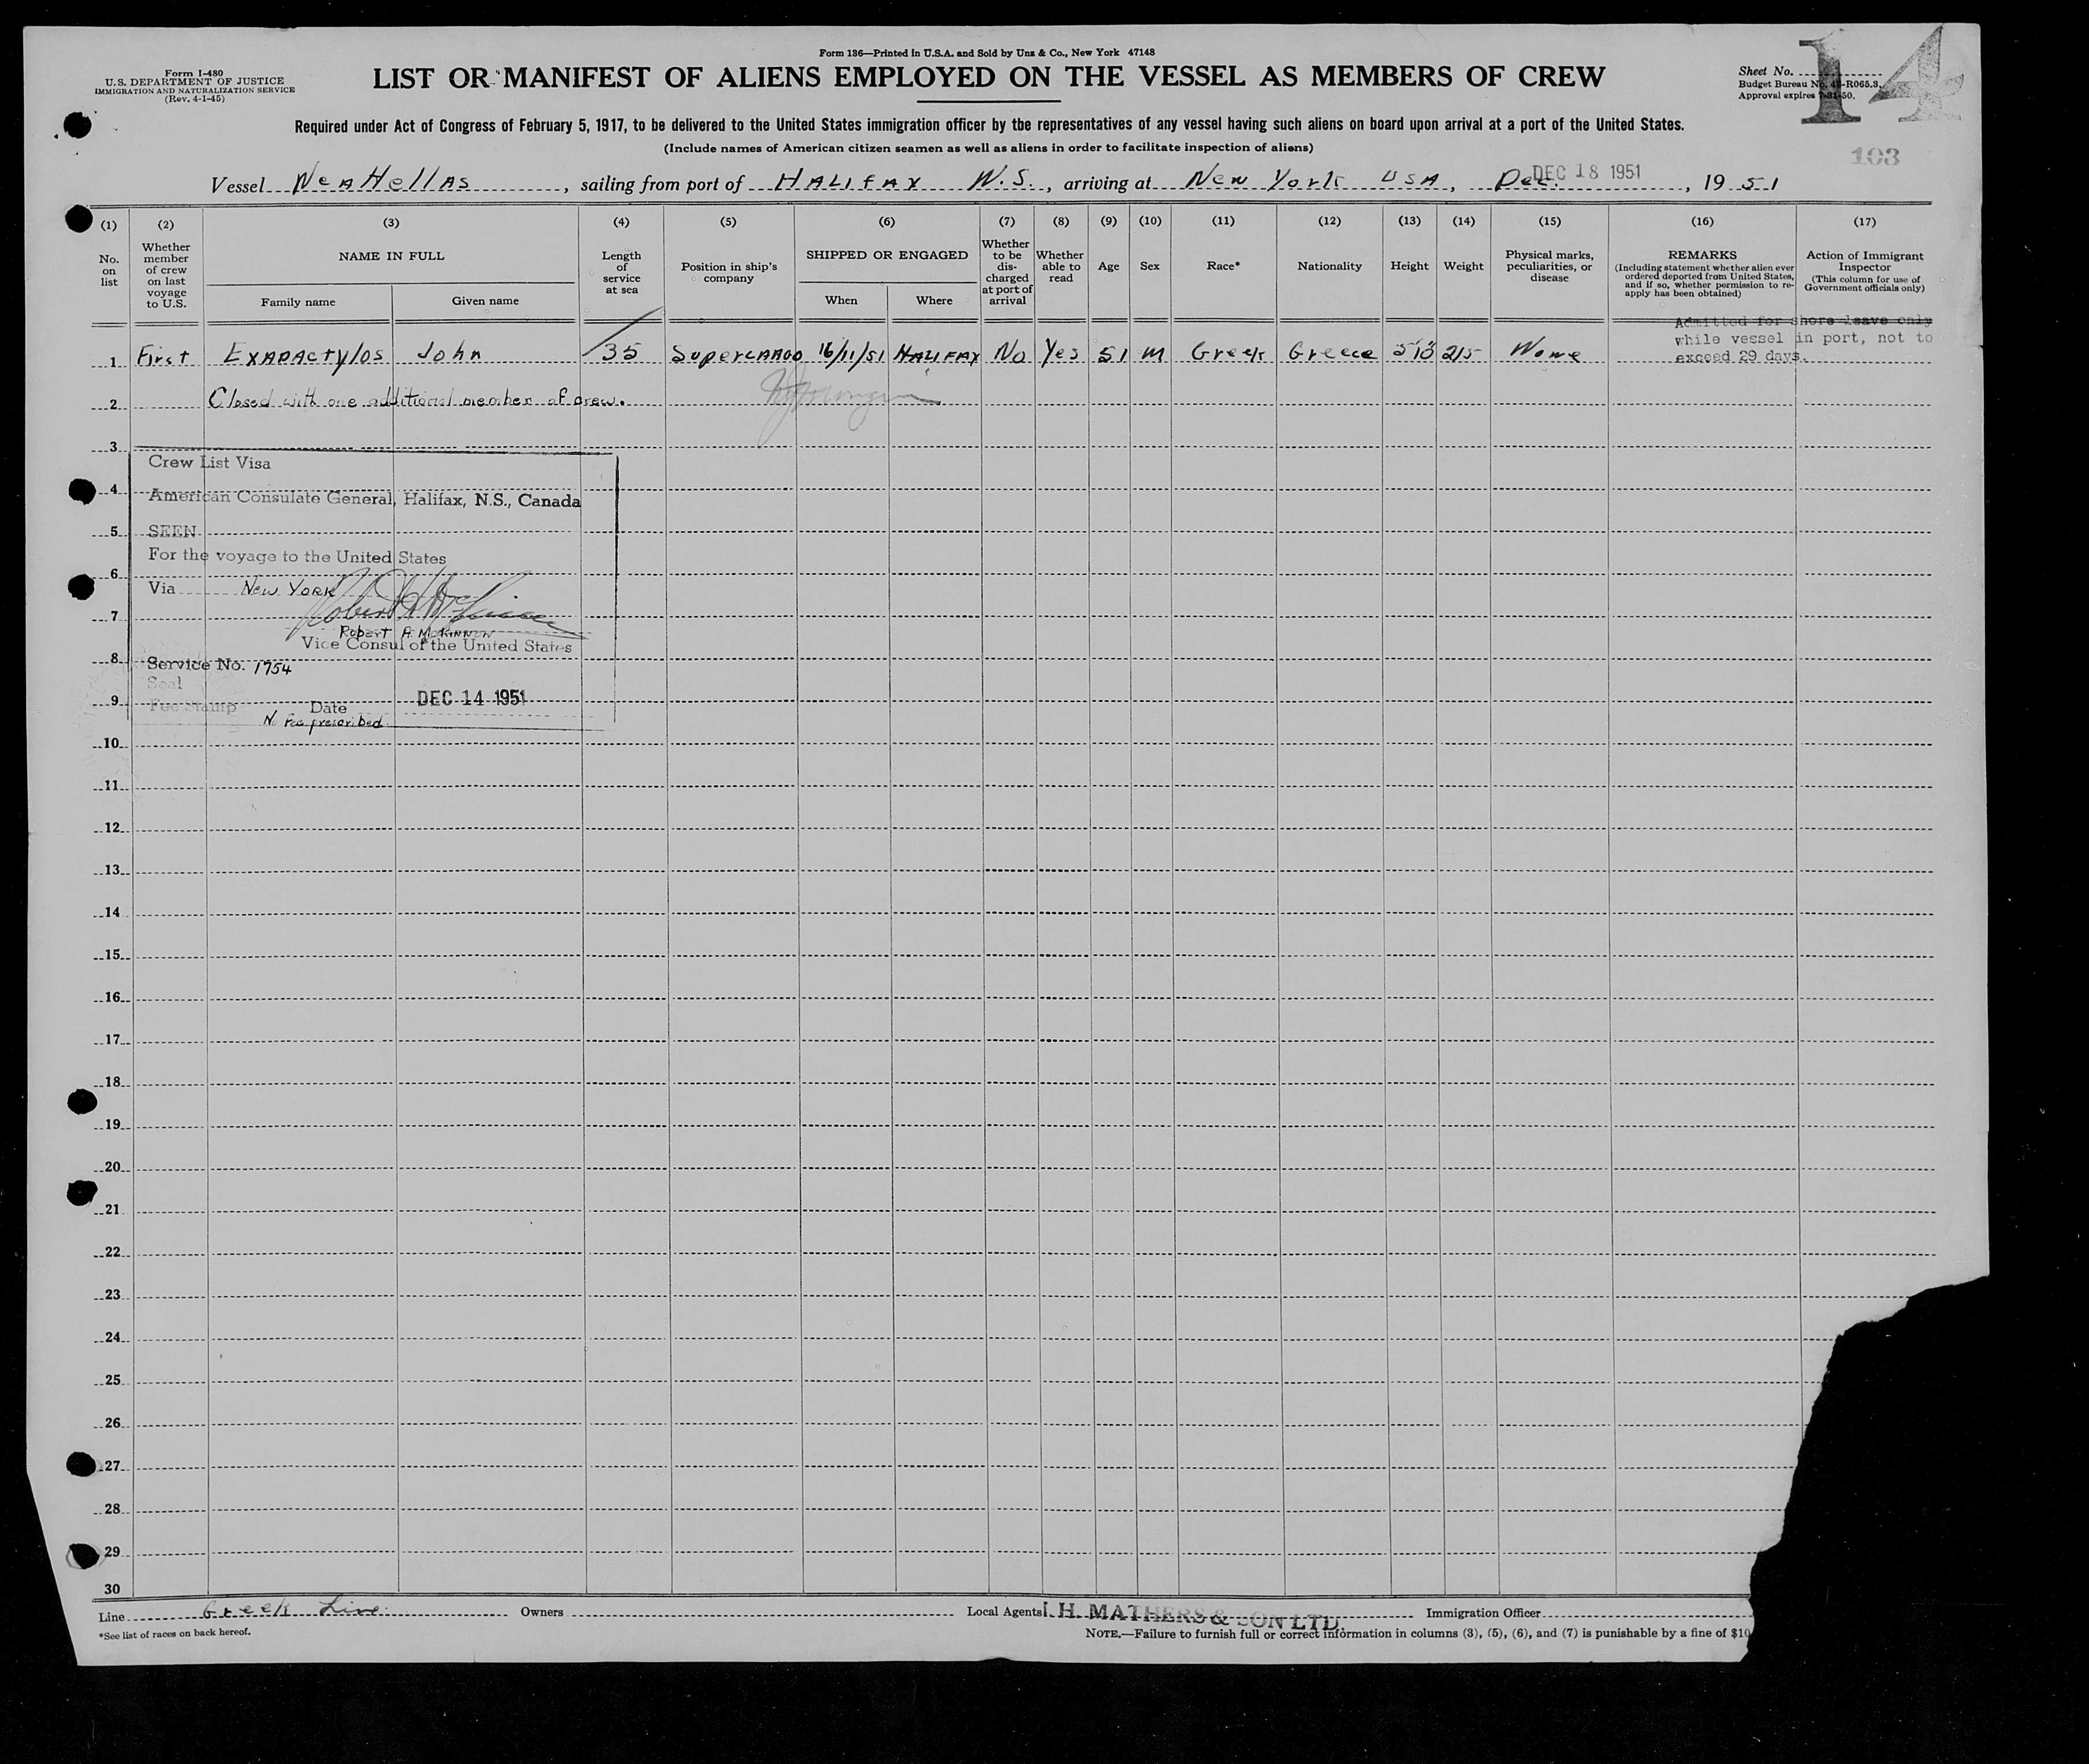 Form 136—Printed in U.S.A. and Sold by Unz & Co., New York 47148
Form I-480
U.S. DEPARTMENT OF JUSTICE
IMMIGRATION AND NATURALIZATION SERVICE
(Rev. 4-1-45)
LIST OR MANIFEST OF ALIENS EMPLOYED ON THE VESSEL AS MEMBERS OF CREW
Sheet No.
14
Budget Bureau No. 43-R065.3.
Approval expires 7-31-50.
Required under Act of Congress of February 5, 1917, to be delivered to the United States immigration officer by the representatives of any vessel having such aliens on board upon arrival at a port of the United States.
(Include names of American citizen seamen as well as aliens in order to facilitate inspection of aliens)
103
Vessel NeaHellas, sailing from port of HALIFAX N.S., arriving at New York USA, Dec. DEC 18 1951, 1951
(1) (2) (3) (4) (5) (6) (7) (8) (9) (10) (11) (12) (13) (14) (15) (16) (17)
No. on list
Whether member of crew on last voyage to U.S.
NAME IN FULL
Family name
Given name
Length of service at sea
Position in ship's company
SHIPPED OR ENGAGED
When
Where
Whether to be discharged at port of arrival
Whether able to read
Age
Sex
Race*
Nationality
Height
Weight
Physical marks, peculiarities, or disease
REMARKS
(Including statement whether alien ever ordered deported from United States, and if so, whether permission to reapply has been obtained)
Action of Immigrant Inspector
(This column for use of Government officials only)
Admitted for shore leave only
while vessel in port, not to
exceed 29 days.
1 First EXADACTYlOS John 35 SuperCARGO 16/11/51 HALIFAX No Yes 51 M Greek Greece 5'10" 215 None
2 Closed with one additional member of crew.
3
Crew List Visa
4 American Consulate General, Halifax, N.S., Canada
5 SEEN
For the voyage to the United States
6
Via New YORK
7
Robert A McKinnon
Vice Consul of the United States
8 Service No. 1754
Seal
9 Fee Stamp Date DEC 14 1951
No Fee prescribed
10
11
12
13
14
15
16
17
18
19
20
21
22
23
24
25
26
27
28
29
30
Line Greek Line. Owners Local Agents I. H. MATHERS & SON LTD. Immigration Officer
*See list of races on back hereof.
NOTE.—Failure to furnish full or correct information in columns (3), (5), (6), and (7) is punishable by a fine of $10